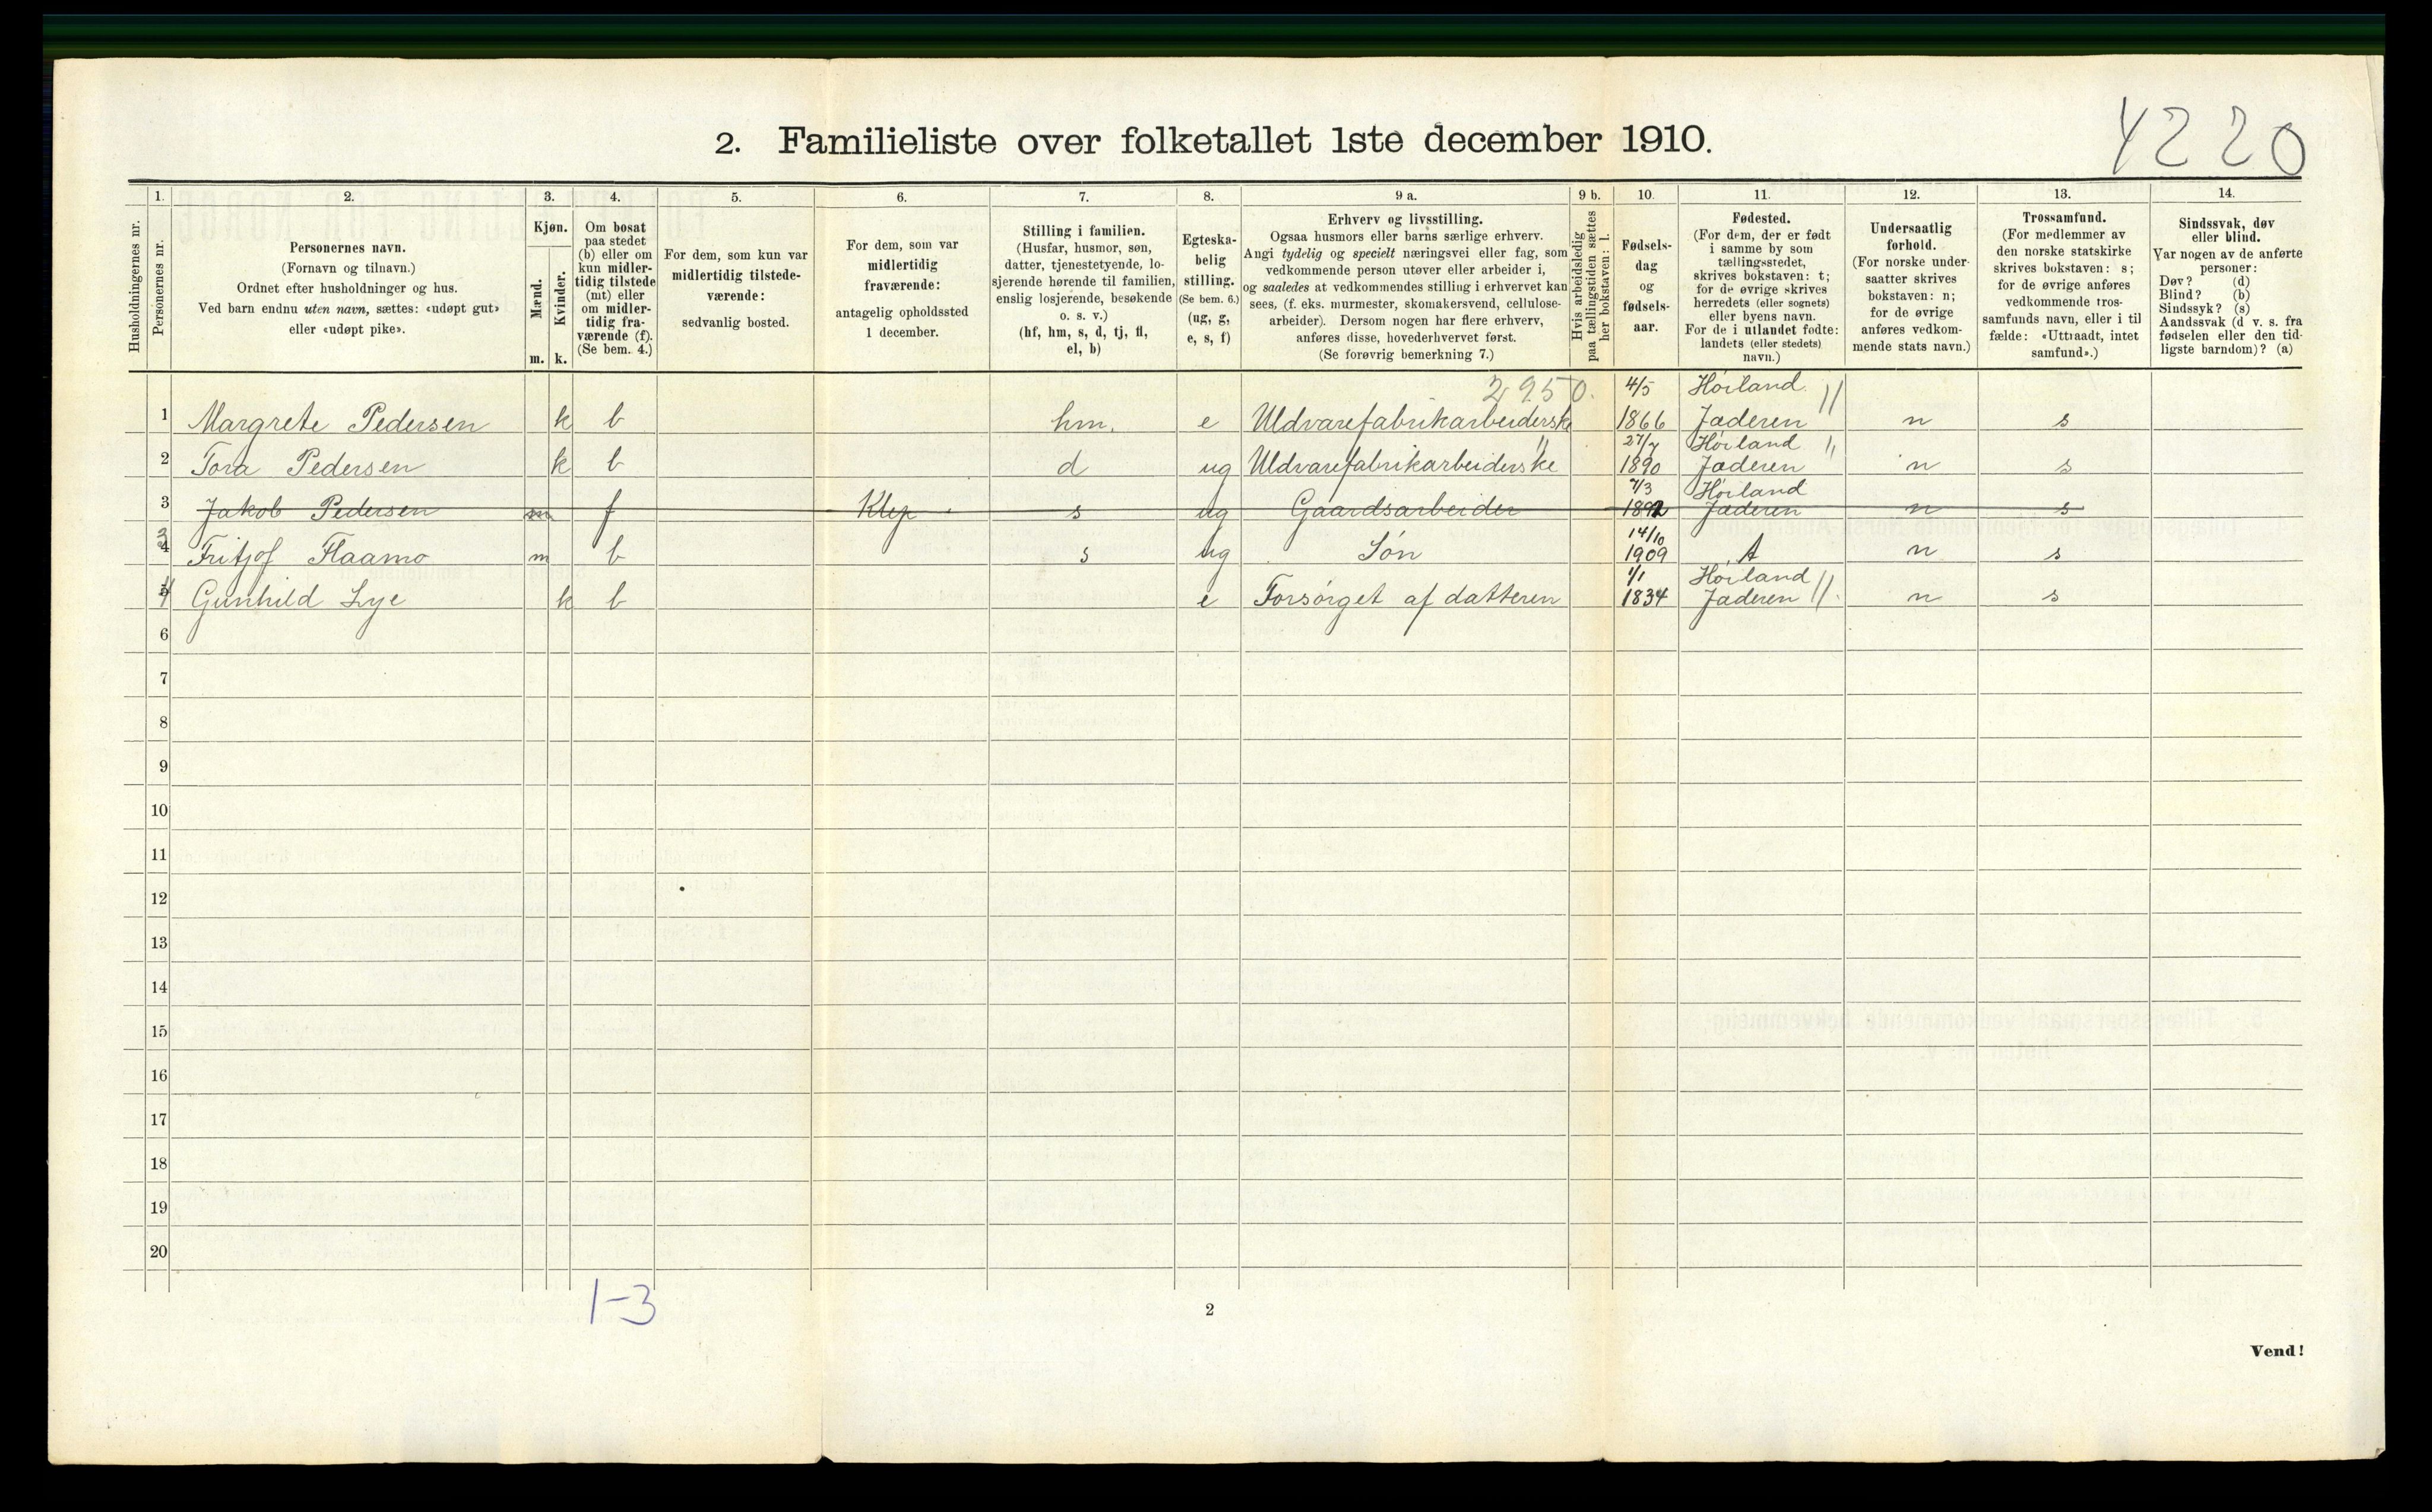 4220
2. Familieliste over folketallet 1ste december 1910.
Husholdningernes nr.
1. Personernes nr.
2. Personernes navn. (Fornavn og tilnavn.) Ordnet efter husholdninger og hus. Ved barn endnu uten navn, sættes: «udøpt gut» eller «udøpt pike».
3. Kjøn. Mænd. m. Kvinder. k.
4. Om bosat paa stedet (b) eller om kun midlertidig tilstede (mt) eller om midlertidig fraværende (f). (Se bem. 4.)
5. For dem, som kun var midlertidig tilstedeværende: sedvanlig bosted.
6. For dem, som var midlertidig fraværende: antagelig opholdssted 1 december.
7. Stilling i familien. (Husfar, husmor, søn, datter, tjenestetyende, losjerende hørende til familien, enslig losjerende, besøkende o. s. v.) (hf, hm, s, d, tj, fl, el, b)
8. Egteskabelig stilling. (Se bem. 6.) (ug, g, e, s, f)
9 a. Erhverv og livsstilling. Ogsaa husmors eller barns særlige erhverv. Angi tydelig og specielt næringsvei eller fag, som vedkommende person utøver eller arbeider i, og saaledes at vedkommendes stilling i erhvervet kan sees, (f. eks. murmester, skomakersvend, cellulosearbeider). Dersom nogen har flere erhverv, anføres disse, hovederhvervet først. (Se forøvrig bemerkning 7.)
9 b. Hvis arbeidsledig paa tællingstiden sættes her bokstaven: l.
10. Fødselsdag og fødselsaar.
11. Fødested. (For dem, der er født i samme by som tællingsstedet, skrives bokstaven: t; for de øvrige skrives herredets (eller sognets) eller byens navn. For de i utlandet fødte: landets (eller stedets) navn.)
12. Undersaatlig forhold. (For norske undersaatter skrives bokstaven: n; for de øvrige anføres vedkommende stats navn.)
13. Trossamfund. (For medlemmer av den norske statskirke skrives bokstaven: s; for de øvrige anføres vedkommende trossamfunds navn, eller i tilfælde: «Uttraadt, intet samfund».)
14. Sindssvak, døv eller blind. Var nogen av de anførte personer: Døv? (d) Blind? (b) Sindssyk? (s) Aandssvak (d. v. s. fra fødselen eller den tidligste barndom)? (a)
2950.
1 Margrete Pedersen k b hm. e Uldvarefabrikarbeiderske 4/5 1866 Høiland Jæderen n s
2 Tora Pedersen k b d ug Uldvarefabrikarbeiderske 27/7 1890 Høiland Jæderen n s
3 Jakob Pedersen m f Klep s ug Gaardsarbeider 7/3 1892 Høiland Jæderen n s
4 3 Fritjof Flaamo m b s ug Søn 14/10 1909 t n s
5 4 Gunhild Lye k b e Forsørget af datteren 1/1 1834 Høiland Jæderen n s
6
7
8
9
10
11
12
13
14
15
16
17
18
19
20
1-3
2
Vend!